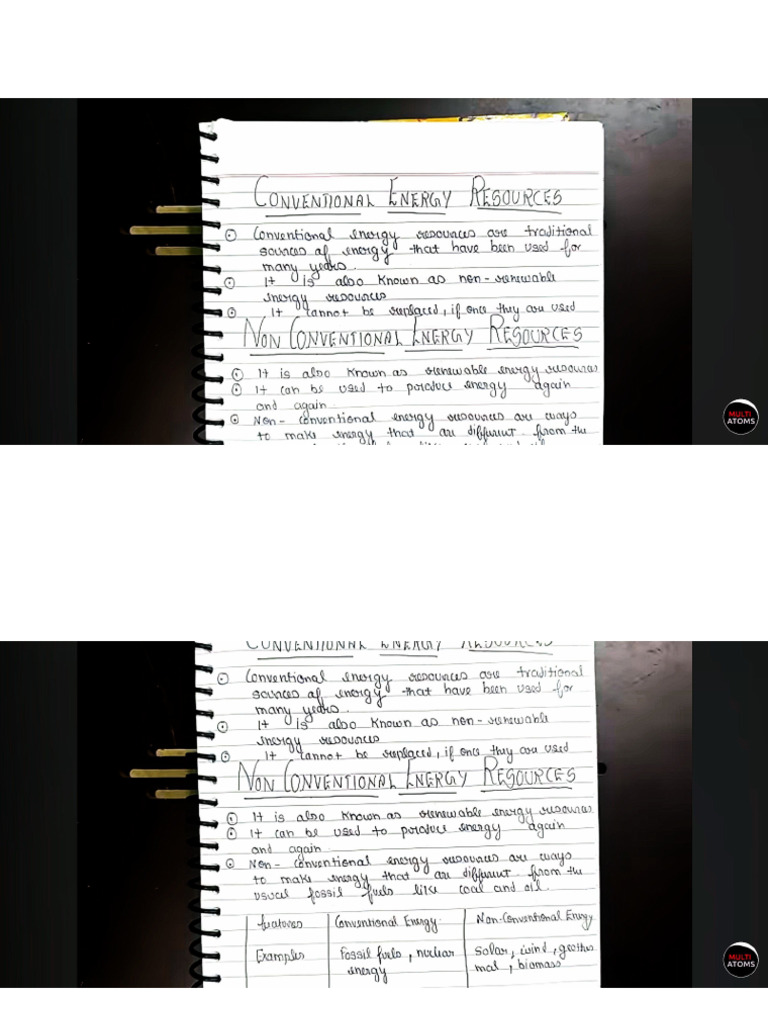 CONVENTIONAL ENERGY RESOURCES
Conventional energy resources are traditional
sources of energy that have been used for
many years.
It is also known as non-renewable
energy resources
It cannot be replaced, if once they are used
NON CONVENTIONAL ENERGY RESOURCES
It is also known as renewable energy resources
It can be used to produce energy again
and again.
Non-conventional energy resources are ways
to make energy that are different from the
MULTI
ATOMS
CONVENTIONAL ENERGY RESOURCES
Conventional energy resources are traditional
sources of energy that have been used for
many years.
It is also known as non-renewable
energy resources
It cannot be replaced, if once they are used
NON CONVENTIONAL ENERGY RESOURCES
It is also known as renewable energy resources
It can be used to produce energy again
and again.
Non-conventional energy resources are ways
to make energy that are different from the
usual fossil fuels like coal and oil.
features Conventional Energy Non-Conventional Energy
Examples Fossil fuels, nuclear Solar, wind, geother
energy mal, biomass
MULTI
ATOMS